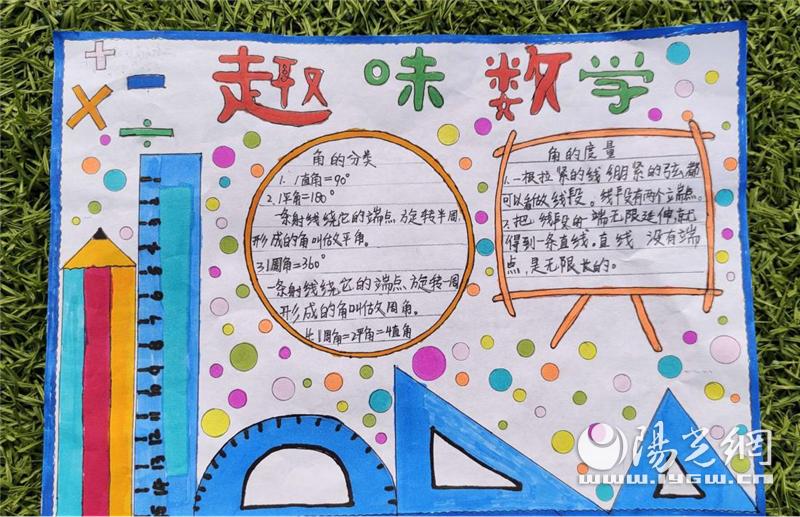 趣味数学
角的分类
1. 1直角=90°
2.1平角=180°
一条射线绕它的端点旋转半周,
形成的角叫做平角。
3.1周角=360°
一条射线绕它的端点旋转一周
形成的角叫做周角。
4.1周角=2平角=4直角
角的度量
1.一根拉紧的线绷紧的弦都
可以看做线段。线段有两个端点。
2.把线段的一端无限延伸就
得到一条直线。直线没有端
点,是无限长的。
陽光網
www.iygw.cn